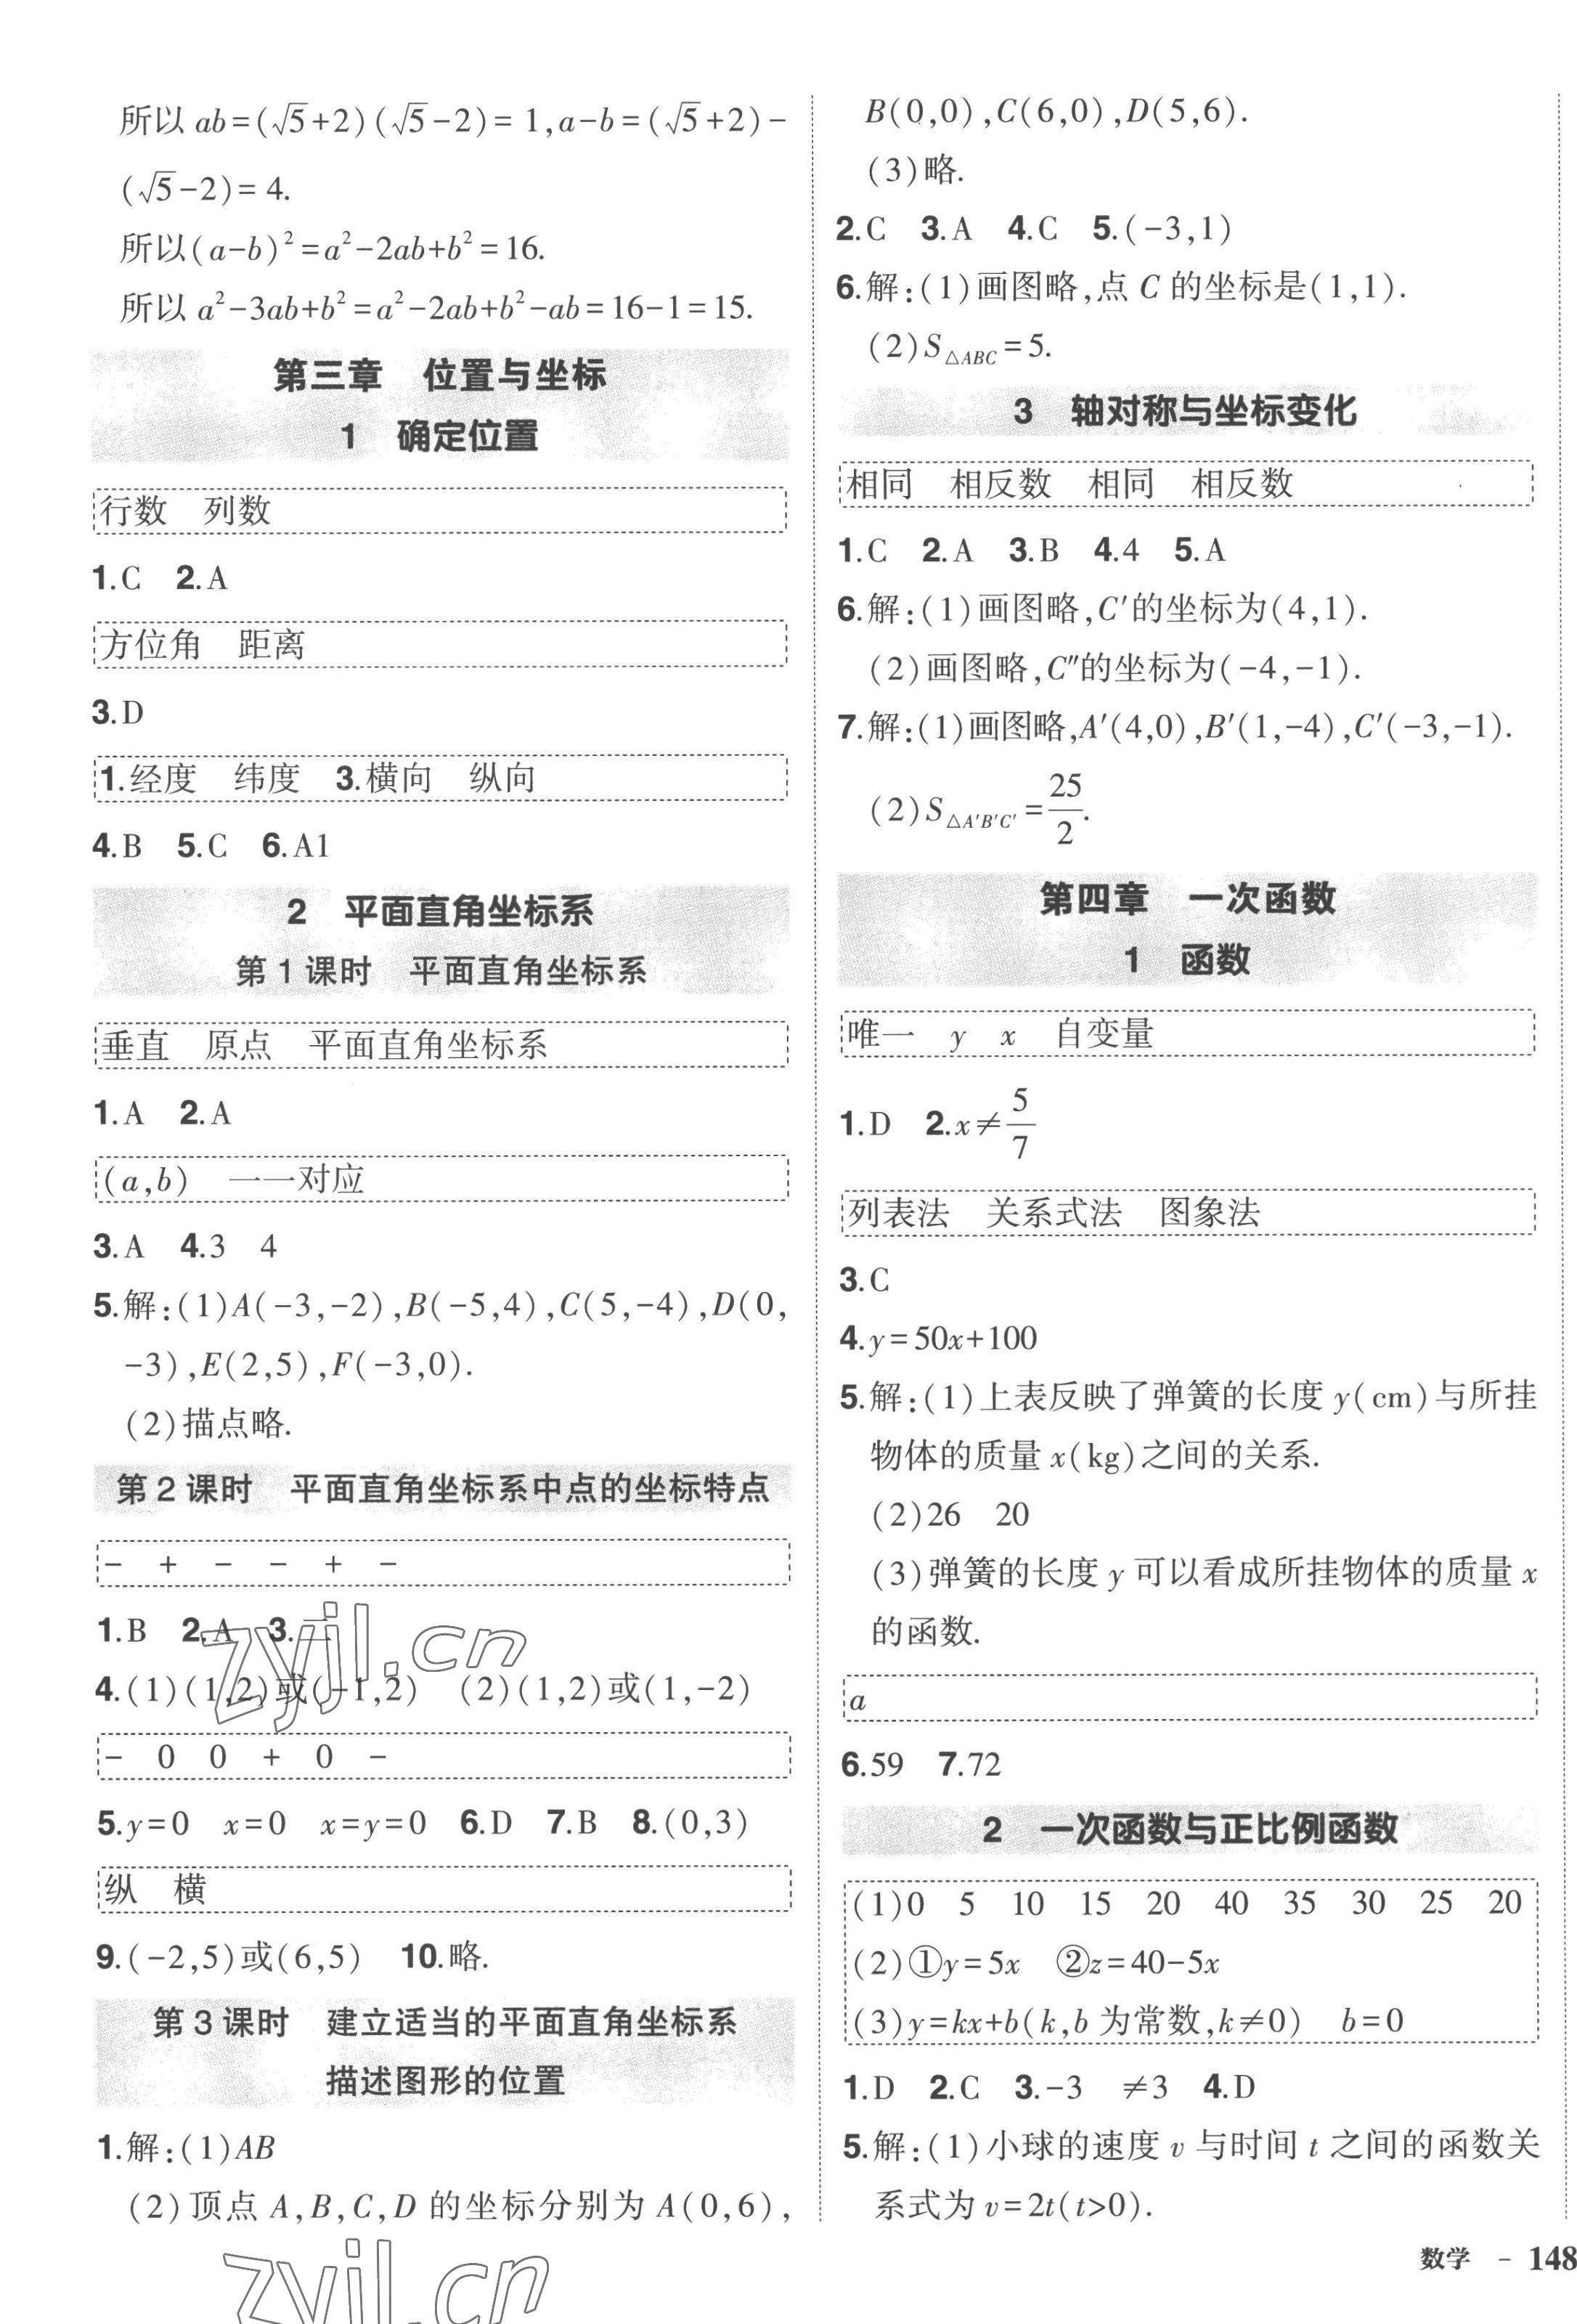 所以 ab=(√5+2)(√5-2)=1,a-b=(√5+2)-
(√5-2)=4.
所以(a-b)²=a²-2ab+b²=16.
所以 a²-3ab+b²=a²-2ab+b²-ab=16-1=15.
第三章 位置与坐标
1 确定位置
行数 列数
1.C 2.A
方位角 距离
3.D
1.经度 纬度 3.横向 纵向
4.B 5.C 6.A1
2 平面直角坐标系
第1课时 平面直角坐标系
垂直 原点 平面直角坐标系
1.A 2.A
(a,b) 一一对应
3.A 4.3 4
5.解:(1)A(-3,-2),B(-5,4),C(5,-4),D(0,
-3),E(2,5),F(-3,0).
(2)描点略.
第2课时 平面直角坐标系中点的坐标特点
- + - - + -
1.B 2.A 3.二
4.(1)(1,2)或(-1,2) (2)(1,2)或(1,-2)
- 0 0 + 0 -
5.y=0 x=0 x=y=0 6.D 7.B 8.(0,3)
纵 横
9.(-2,5)或(6,5) 10.略.
第3课时 建立适当的平面直角坐标系
描述图形的位置
1.解:(1)AB
(2)顶点 A,B,C,D 的坐标分别为 A(0,6),
B(0,0),C(6,0),D(5,6).
(3)略.
2.C 3.A 4.C 5.(-3,1)
6.解:(1)画图略,点 C 的坐标是(1,1).
(2)S△ABC=5.
3 轴对称与坐标变化
相同 相反数 相同 相反数
1.C 2.A 3.B 4.4 5.A
6.解:(1)画图略,C′的坐标为(4,1).
(2)画图略,C″的坐标为(-4,-1).
7.解:(1)画图略,A′(4,0),B′(1,-4),C′(-3,-1).
(2)S△A′B′C′=25/2.
第四章 一次函数
1 函数
唯一 y x 自变量
1.D 2.x≠5/7
列表法 关系式法 图象法
3.C
4.y=50x+100
5.解:(1)上表反映了弹簧的长度 y(cm)与所挂
物体的质量 x(kg)之间的关系.
(2)26 20
(3)弹簧的长度 y 可以看成所挂物体的质量 x
的函数.
a
6.59 7.72
2 一次函数与正比例函数
(1)0 5 10 15 20 40 35 30 25 20
(2)①y=5x ②z=40-5x
(3)y=kx+b(k,b 为常数,k≠0) b=0
1.D 2.C 3.-3 ≠3 4.D
5.解:(1)小球的速度 v 与时间 t 之间的函数关
系式为 v=2t(t>0).
数学 - 148
zyjl.cn
zyjl.cn